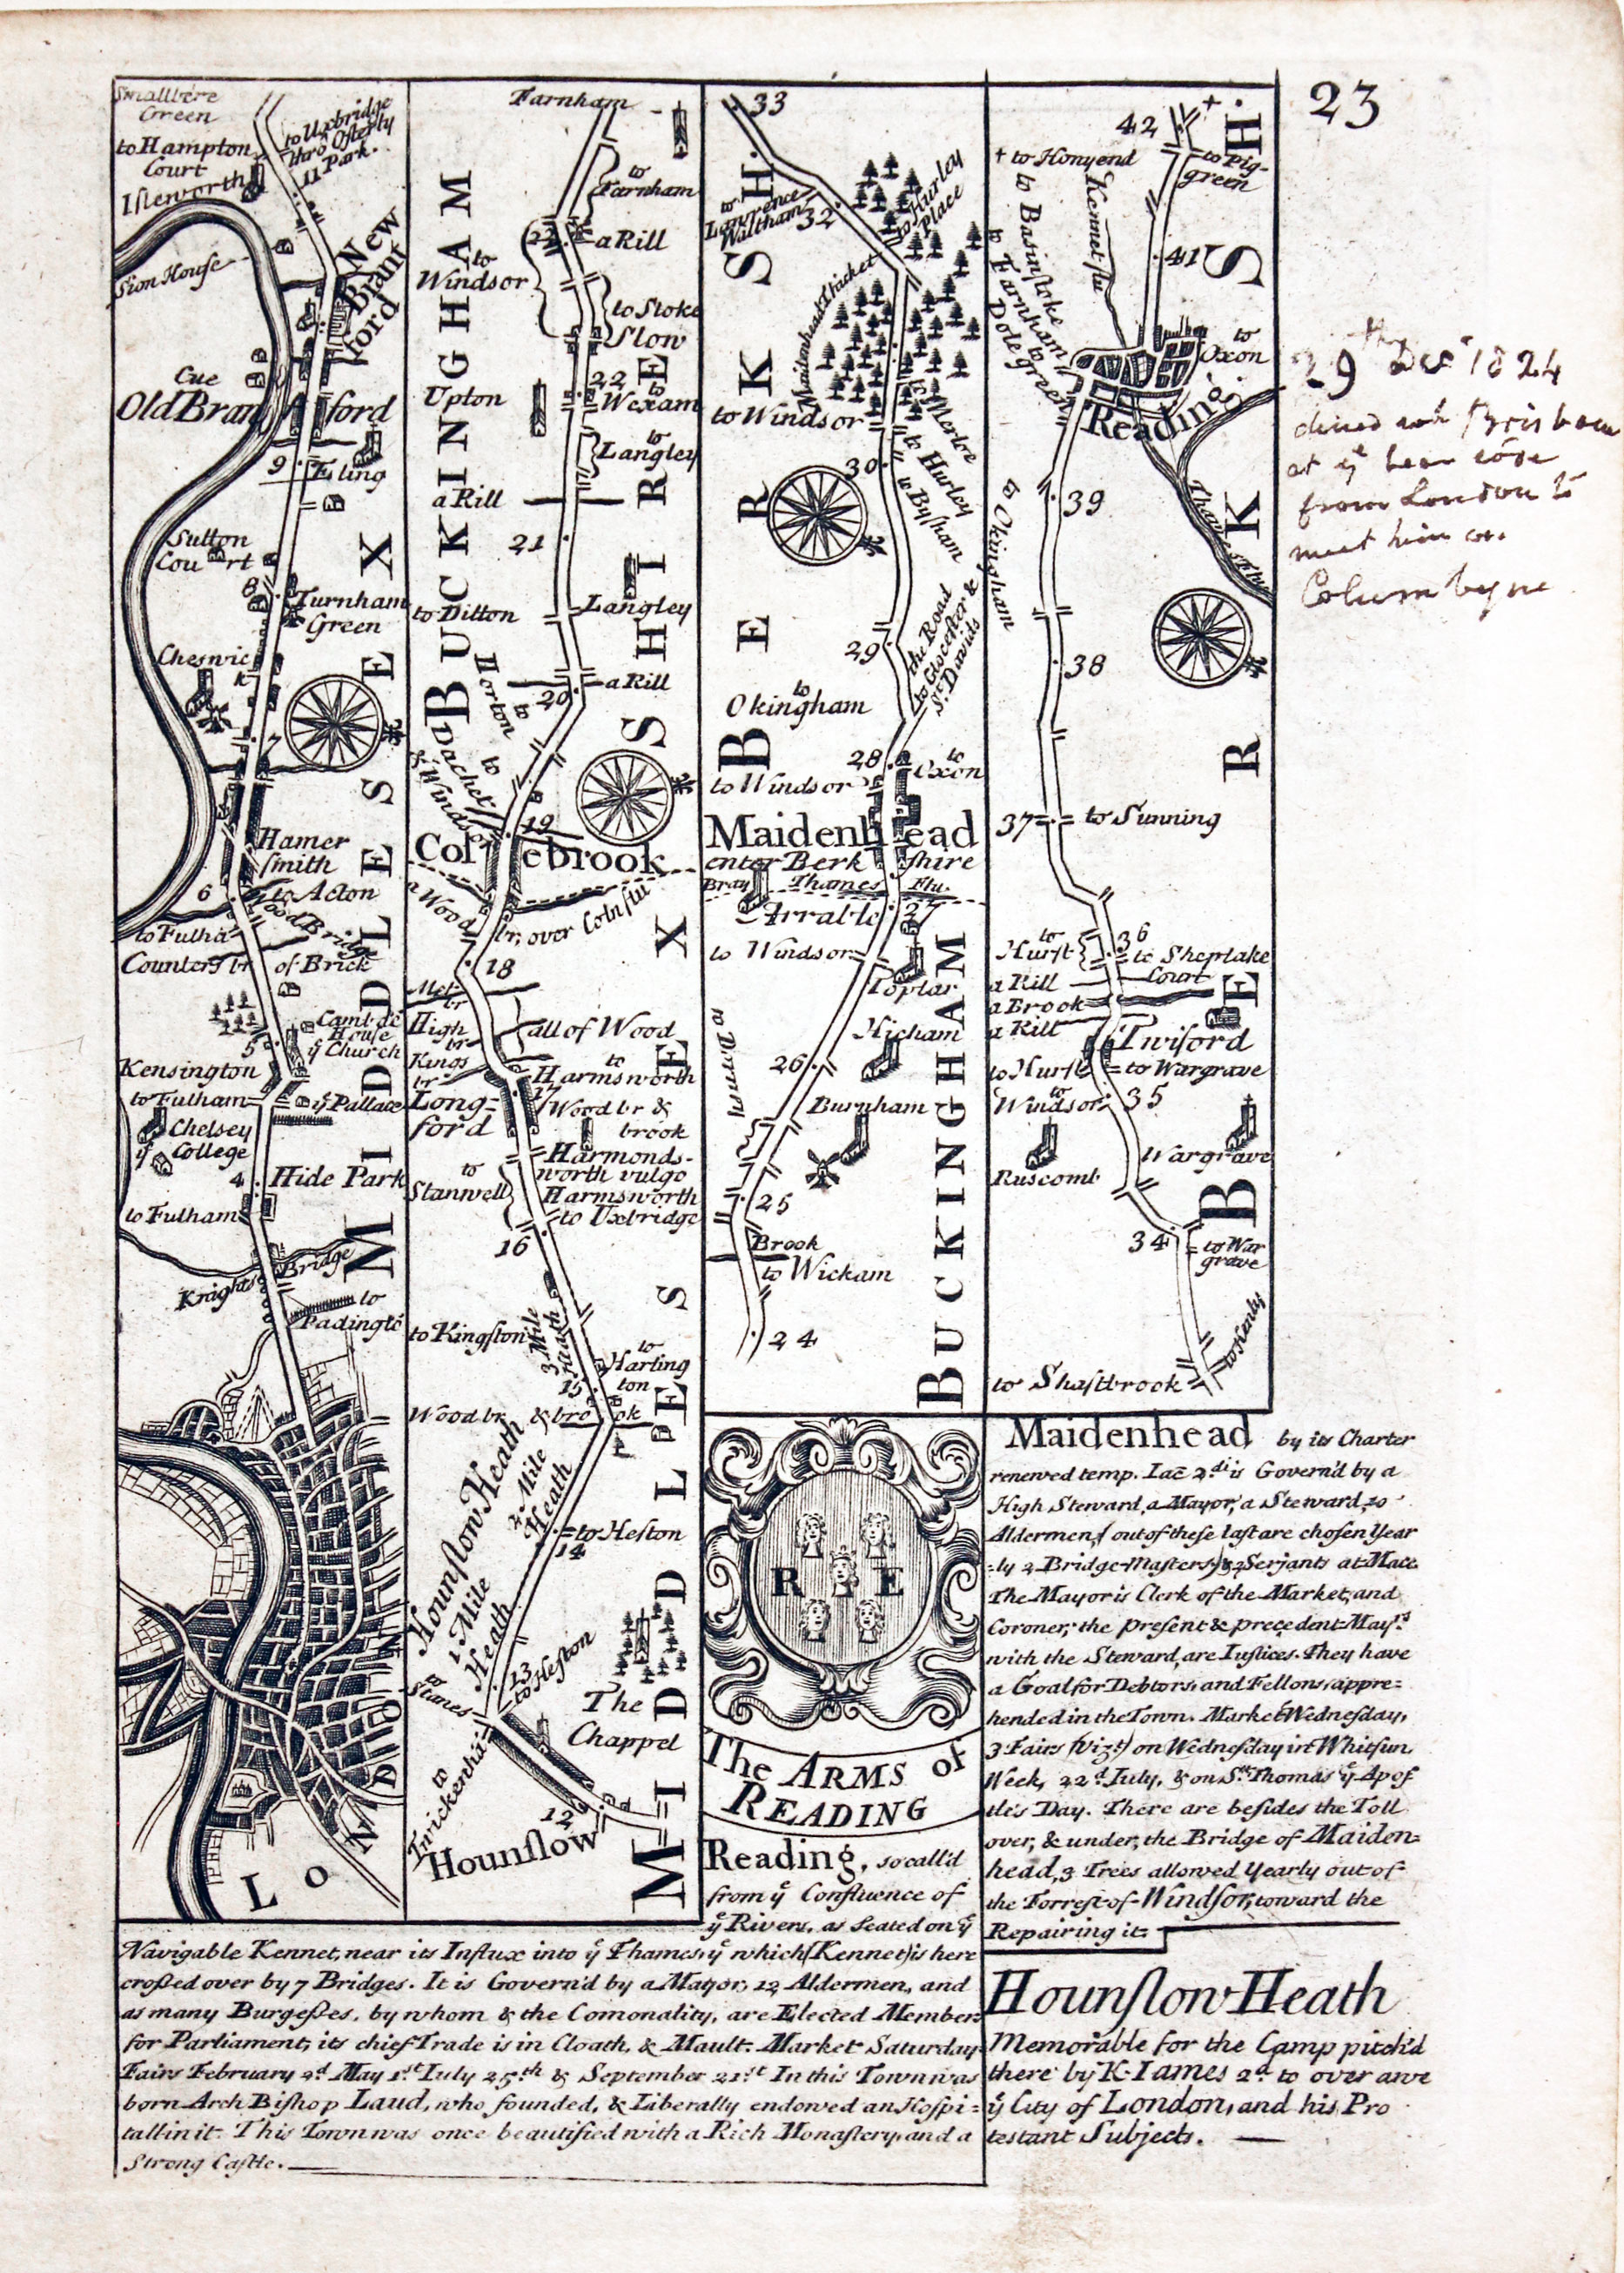 23
Smallbere
Green
to Hampton
Court
Isleworth
to Uxbridge
thro' Osterly
Park.
11
Sion House
New
Brant
ford
Cue
Old Bran ford
9
Eling
Sutton
Cou rt
8
Turnham
Green
Cheswic
k
7
Hamer
smith
6
to Acton
Wood Bridge
to Fulhā
Counters br
of Brick
Camb:dē
House
ẙ Church
5
Kensington
to Fulham
ẙ Pallace
Chelsey
ẙ College
4
Hide Park
to Fulham
Knights Bridge
to
Padingtō
MIDDLESEX
LONDON
Farnham
to
Farnham
23
a Rill
to
Windsor
to Stoke
Slow
22
to
Wexam
Upton
to
Langley
a Rill
21
Langley
to Ditton
a Rill
20
to Horton
to Dachet
& Windsor
19
Col ebrook
a Wood br. over Coln flu
18
Mel:
br
High
br
all of Wood
Kings
br
to
Harmsworth
17
Long=
ford
Wood br &
brook
Harmonds-
worth vulgo
Harmsworth
to
Stanwell
to Uxbridge
16
to Kingston
3 Mile
to
Harling
ton
15
Wood br & bro ok
Hounslow Heath
2 Mile
Heath
to Heston
14
1 Mile
Heath
13
to Heston
to
Stanes
The
Chappel
to
Twickenhā
12
Hounslow
BUCKINGHAM
SHIRE
MIDDLESEX
33
to
Lawrence
Waltham
32
to Hurley
Place
Maidenhead Thicket
to Windsor
to Marlow
30
to Hurley
to Bysham
29
the Road
to Glocester &
St. Davids
to
Okingham
28
to
Oxon
to Windsor
Maidenh ead
enter Berk shire
Bray
Thames Flu.
Arrable
27
to Windsor
Toplar
Hicham
26
to Dorney
Burnham
25
Brook
to Wickam
24
BERKSH.
BUCKINGHAM
42
+ to Honyend
to Pig-
green
Kennet flu
to Basinstoke
to Farnham
to
Dolegreen
41
to
Oxon
Reading
39
Thames Flu
to Okingham
38
37
to Sunning
36
to
Hurst
to Sheplake
Court
a Rill
a Brook
a Rill
Twiford
to Hurst
to Wargrave
to
Windsor
35
Wargrave
Ruscomb
34
to War
grave
to Henly
to Shastbrook
BERKSH.
R E
The ARMS of
READING
Reading, so call'd
from ẙ Confluence of
ẙ Rivers, as Seated on ẙ
Navigable Kennet, near its Influx into ẙ Thames, ẙ which (Kennet) is here
crossed over by 7 Bridges. It is Govern'd by a Mayor, 12 Aldermen, and
as many Burgesses, by whom & the Comonality, are Elected Members
for Parliament; its chief Trade is in Cloath, & Mault. Market Saturday
Fairs February 2d. May 1st. Iuly 25th. & September 21st. In this Town was
born Arch Bishop Laud, who founded, & Liberally endowed an Hospi=
tall in it. This Town was once beautified with a Rich Monastery, and a
Strong Castle.
Maidenhead by its Charter
renewed temp. Iac̄ 2di. is Govern'd by a
High Steward, a Mayor, a Steward, 10
Aldermen, (out of these last are chosen Year
=ly 2 Bridge-Masters) & 2 Serjants at Mace
The Mayor is Clerk of the Market, and
Coroner; the present & precedent Mayrs
with the Steward, are Iustices. They have
a Goal for Debtors, and Fellons, appre=
hended in the Town. Market Wednesday,
3 Fairs (Vizt.) on Wednesday in Whitsun
Week, 22d. Iuly, & on St. Thomas ẙ Apos
tle's Day. There are besides the Toll
over, & under, the Bridge of Maiden=
head, 3 Trees allowed Yearly out of
the Forrest of Windsor, toward the
Repairing it.
Hounslow Heath
Memorable for the Camp pitch'd
there by K. Iames 2d. to over awe
ẙ City of London, and his Pro
testant Subjects.
29th Decr 1824
dined with Brisbane
at ye bear
from London to
meet him on